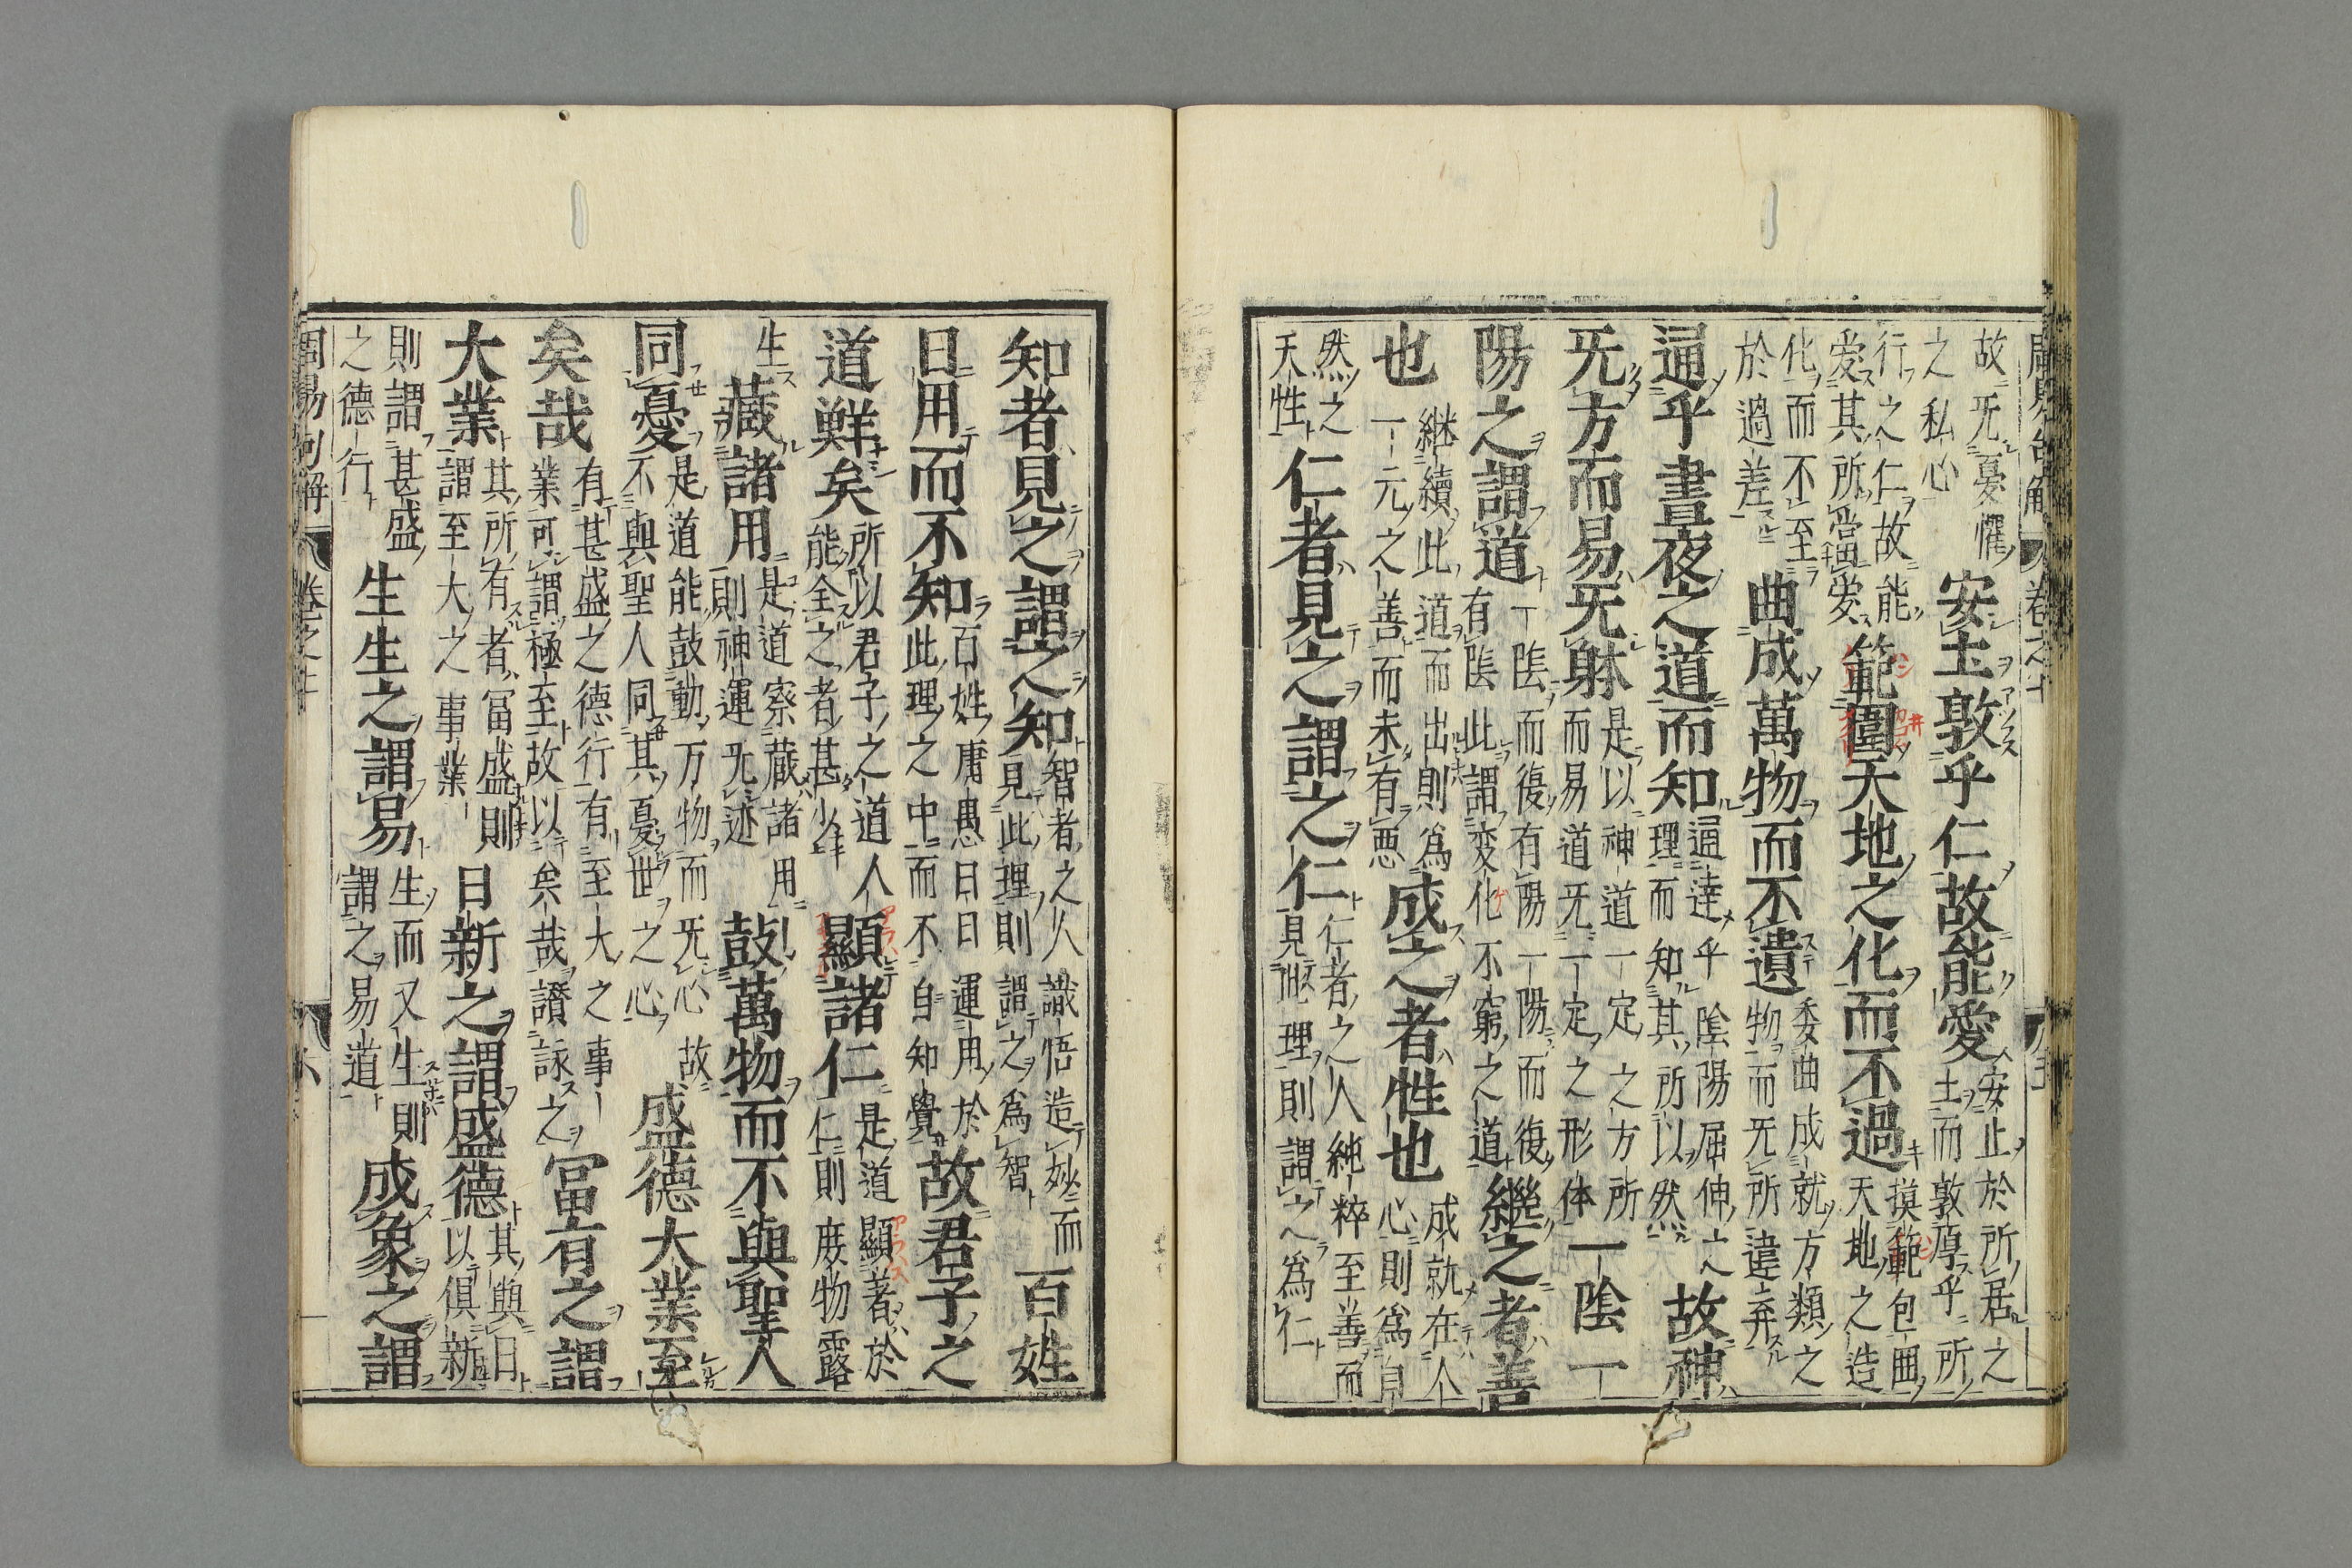 故无憂懼
之私心
安土敦乎仁故能愛
安止於所居之
土而敦厚乎所
行之仁故能
爱其所當爱
範圍天地之化而不過
摸範包囬
天地之造
化而不至
於過差
曲成萬物而不遺
委曲成就方類之
物而无所違弃
通乎晝夜之道而知
通達乎陰陽屈伸之
理而知其所以然
故神
无方而易无躰
是以神道一定之方所
而易道无一定之形体
一陰一
陽之謂道
一陰而復有陽一陽而復
有陰此謂变化不窮之道
繼之者善
也
継續此道而出則為
一元之善而未有悪
成之者性也
成就在人
心則為自
然之
天性
仁者見之謂之仁
仁者之人純粹至善而
見此理則謂之為仁
知者見之謂之知
智者之人識悟造妙而
見此理則謂之為智
百姓
日用而不知
百姓庸愚日日運用於
此理之中而不自知覺
故君子之
道鮮矣
所以君子之道人
能全之者甚少
顯諸仁
是道顯著於
仁則庻物露
生
藏諸用
是道察藏諸用
則神運无迹
鼓萬物而不與聖人
同憂
是道能鼓動万物而无心故
不與聖人同其憂世之心
盛德大業至
矣哉
有甚盛之德行有至大之事
業可謂極至故以矣哉讚詠之
冨有之謂
大業
其所有者冨盛則
謂至大之事業
日新之謂盛德
其與日
以俱新
則謂甚盛
之德行
生生之謂易
生而又生則
謂之易道
成象之謂